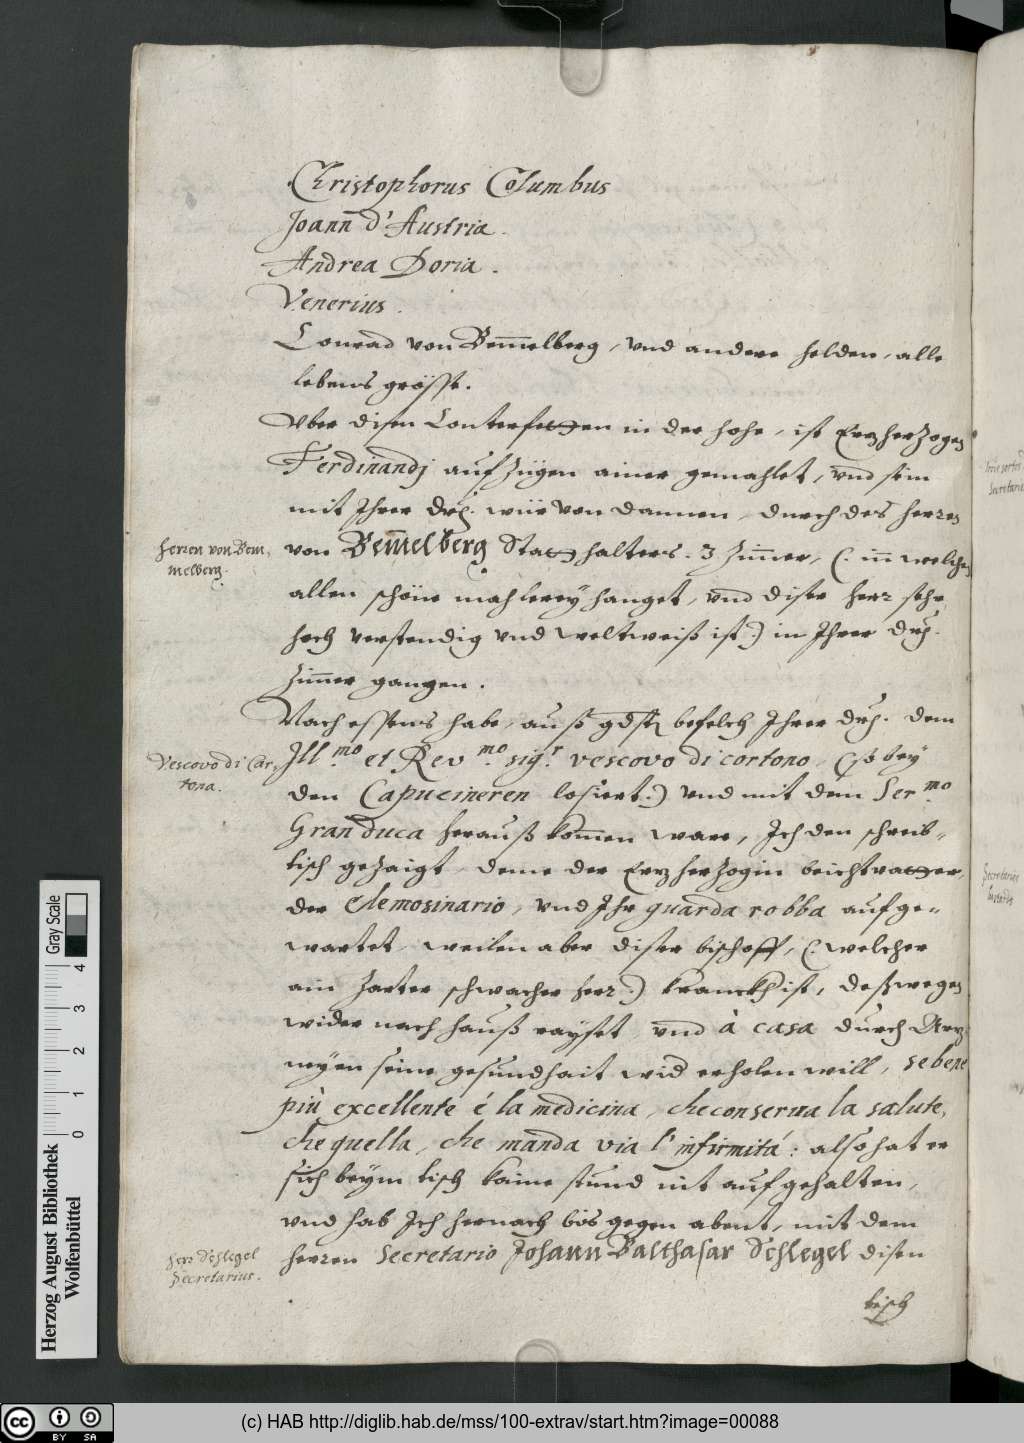 Christophorus Columbus
Joann d'Austria.
Andrea Doria.
Venerius.
Conrad von Bem̄elberg, vnd andere helden, alle
lebens grösse.
Vber disen Conterfetten in der höhe, ist Erzherzogen
Ferdinandj aufzügen ainer gemahlet, vnd sein
mit Ihrer Drh. wür von dannen, durch des herren
von Bem̄elberg Statthalters. 3 Zim̄er, (: in welchen
allen schöne mahlerey hanget, vnd diser herr sehr
hoch verstendig vnd weltweiß ist:) in Ihrer Drh.
Zim̄er gangen.
Nach essens habe, auß gdst. befelch Ihrer Drh. dem
Ill.mo et Rev.mo sig.r vescovo di cortono, (: so bey
den Capucineren losiert:) vnd mit dem Ser.mo
Gran duca herauß kom̄en ware, Ich den schreib-
tisch gezaigt, deme der Erzherzogin beichtvatter,
der Elemosinario, vnd Ihr guarda robba aufge-
wartet, weilen aber diser bischoff, (: welcher
ain zarter schwacher herr:) kranckh ist, deßwegen
wider nach hauß rayset, vnd à casa durch Arz-
neyen seine gesundhait wid erholen will, se bene
più excellente é la medicina, che conserua la salute,
che quella, che manda via l'infirmitá: also hat er
sich beym tisch kaine stund nit aufgehalten,
vnd hab Ich hernach bis gegen abent, mit dem
herren Secretario Johann Balthasar Schlegel disen
tisch
Herren von Bem-
melberg.
Vescovo di Cor-
tona.
Herr Schlegel
Secretarius.
Herzog August Bibliothek
Wolfenbüttel
0 1 2 3 4
Gray Scale
BY SA
(c) HAB http://diglib.hab.de/mss/100-extrav/start.htm?image=00088